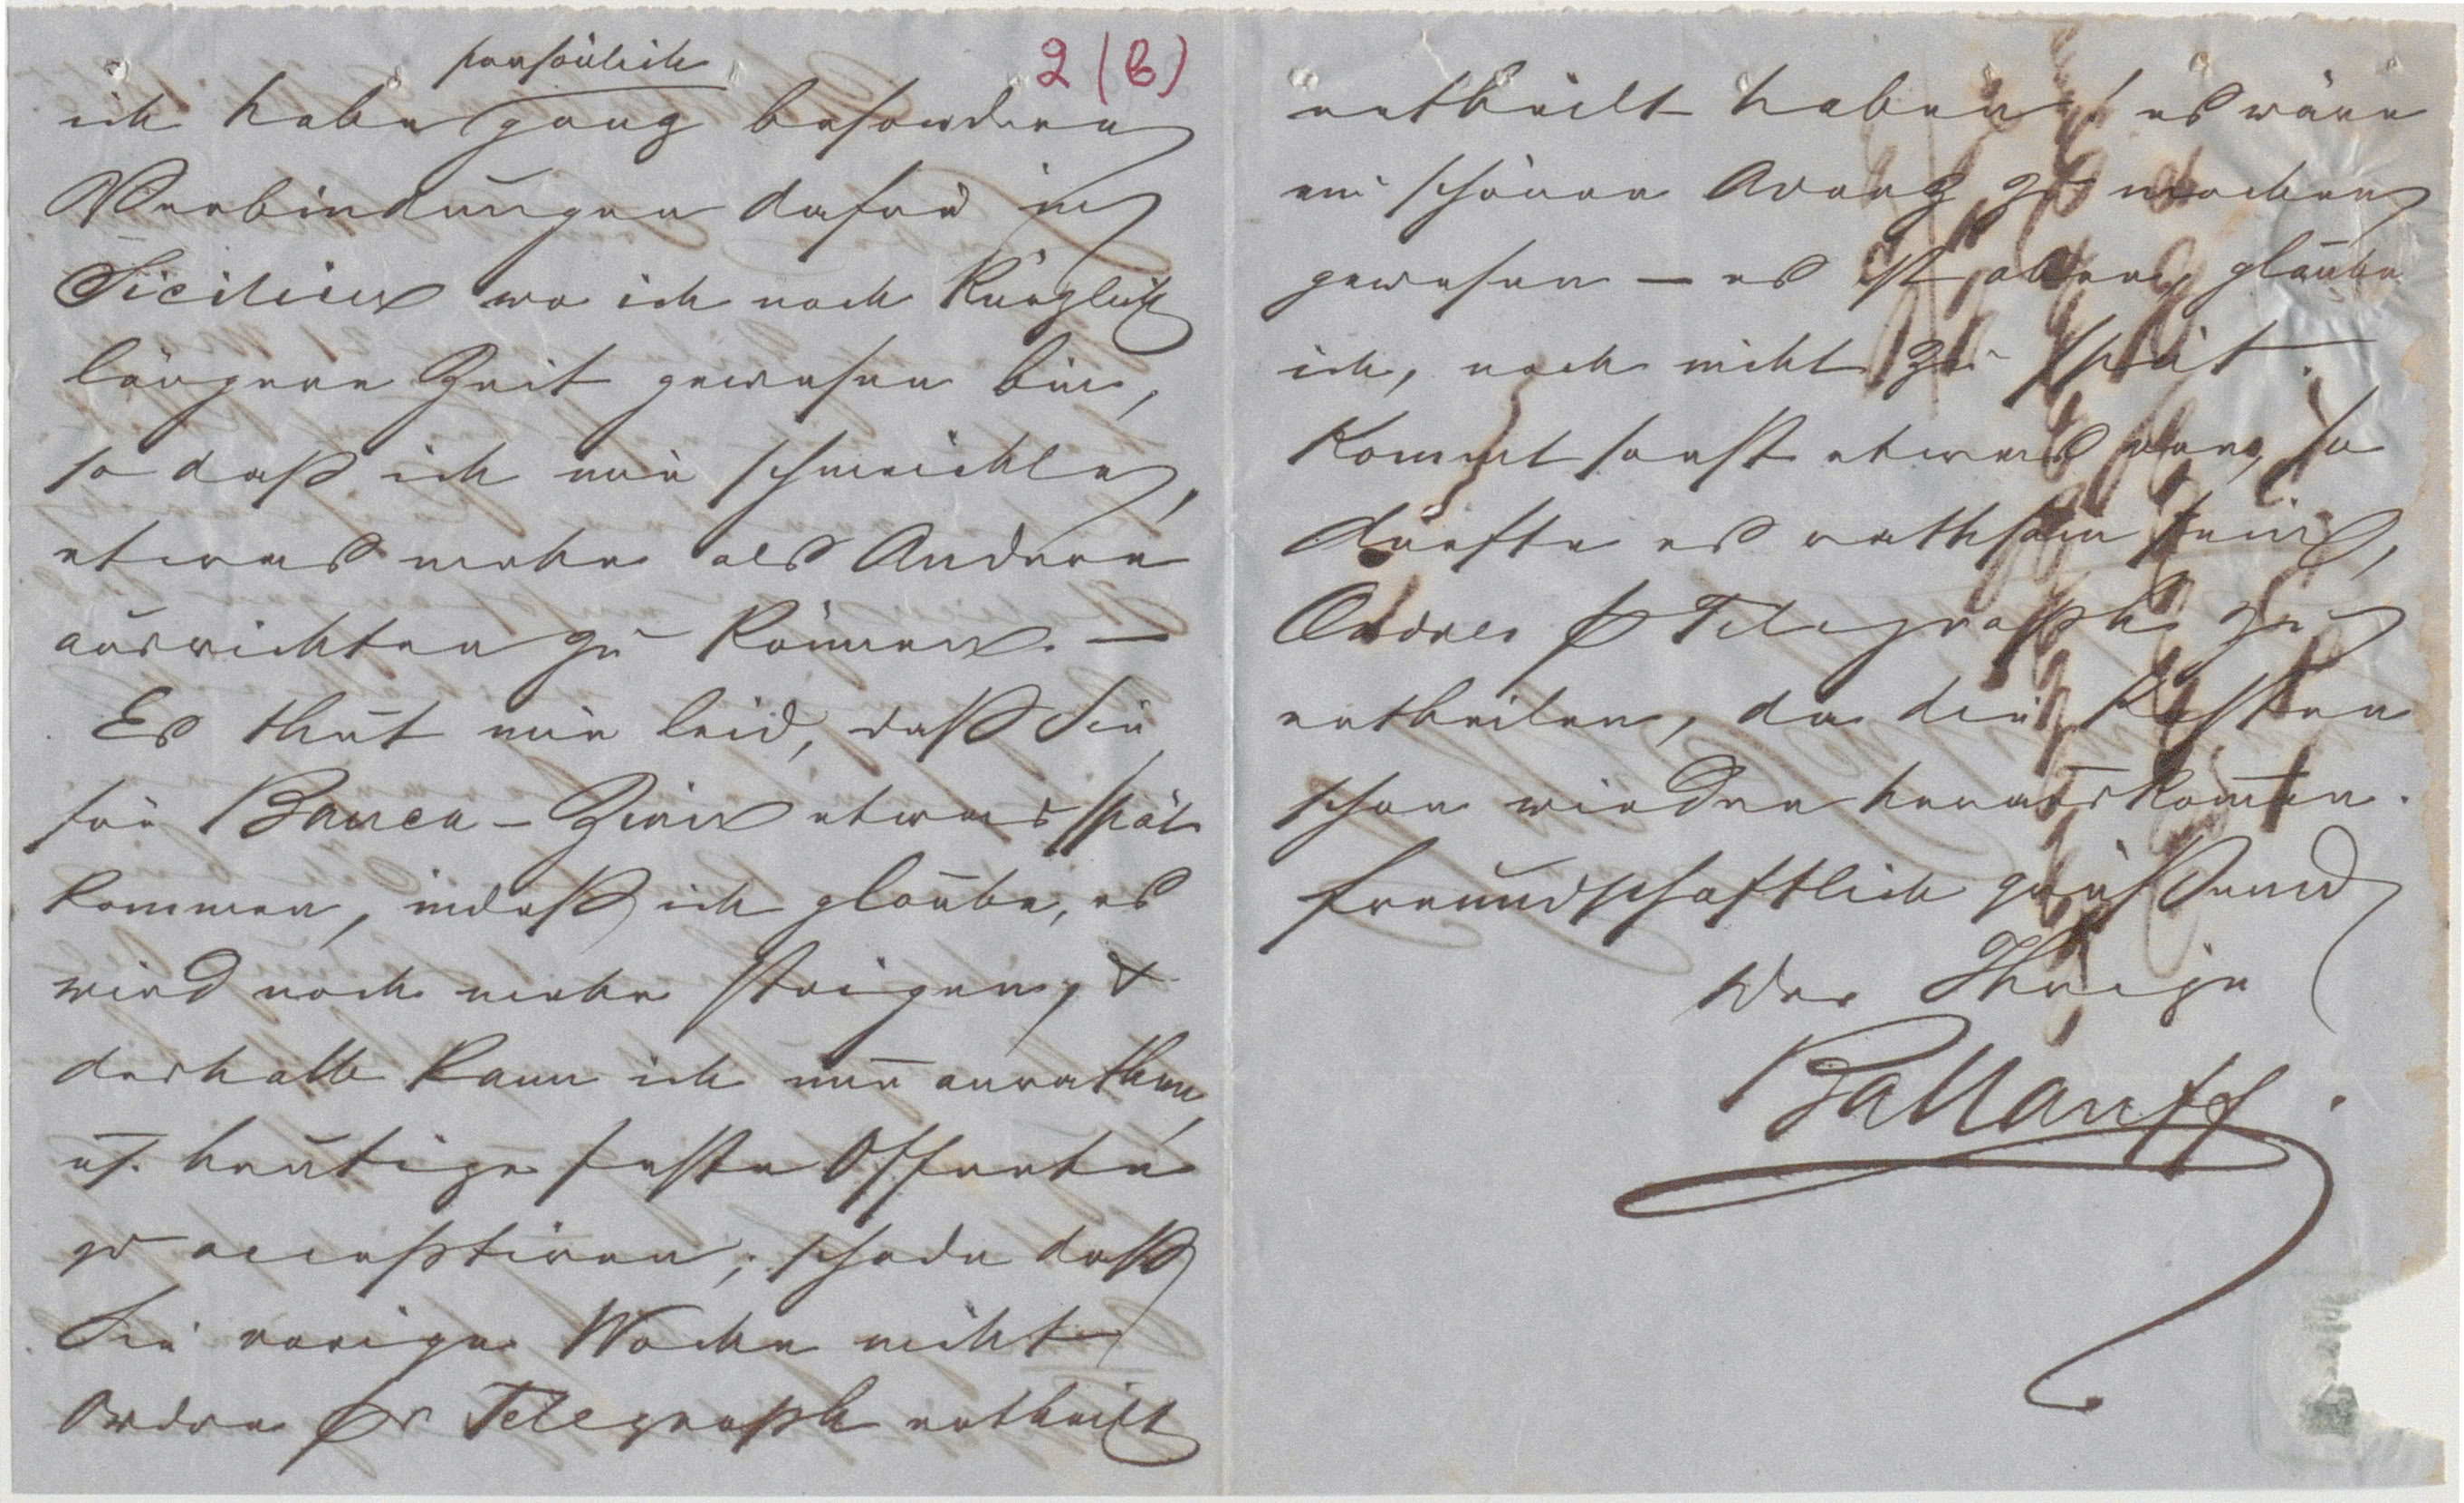 2 (B)
persönlich
ich habe ganz besondere
Verbindungen dafür in
Sicilien wo ich noch kürzlich
längere Zeit gewesen bin,
so daß ich mir schmeichle,
etwas mehr als Andere
ausrichten zu können. —
Es thut mir leid, daß Sie
für Banca-Zinn etwas spät
kommen, indeß ich glaube, es
wird noch mehr steigen, &
deshalb kann ich nur anrathen,
us. heutige feste Offerte
zu acceptiren; schade daß
Sie vorige Woche nicht
Ordre pr Telegraph ertheilt
ertheilt haben, es wäre
ein schöner Avanz zu machen
gewesen — es ist aber, glaube
ich, noch nicht zu spät.
Kommt sonst etwas vor, so
dürfte es rathsam sein,
Ordres p Telegraph zu
ertheilen, da die Kosten
schon wieder herauskommen.
freundschaftlich grüßend
der Ihrige
Ballauff.